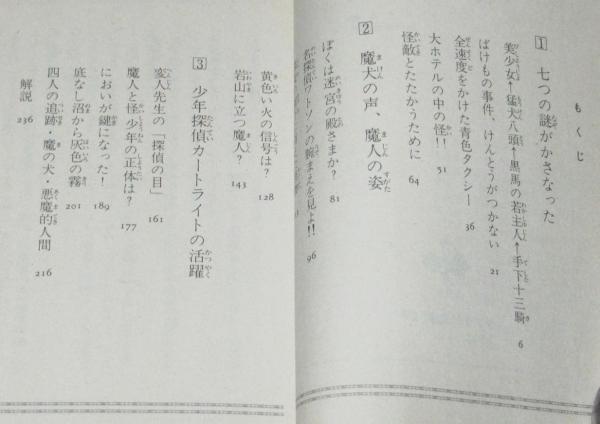 もくじ
1 七つの謎がかさなった
美少女←猛犬八頭←黒馬の若主人←手下十三騎 6
ばけもの事件、けんとうがつかない 21
全速度をかけた青色タクシー 36
大ホテルの中の怪!! 51
怪敵とたたかうために 64
2 魔犬の声、魔人の姿
ぼくは迷宮の殿さまか? 81
名探偵ワトソンの腕まえを見よ!! 96
黄色い火の信号は? 128
岩山に立つ魔人? 143
3 少年探偵カートライトの活躍
変人先生の「探偵の目」 161
魔人と怪少年の正体は? 177
においが鍵になった! 189
底なし沼から灰色の霧 201
四人の追跡・魔の犬・悪魔的人間 216
解説 236